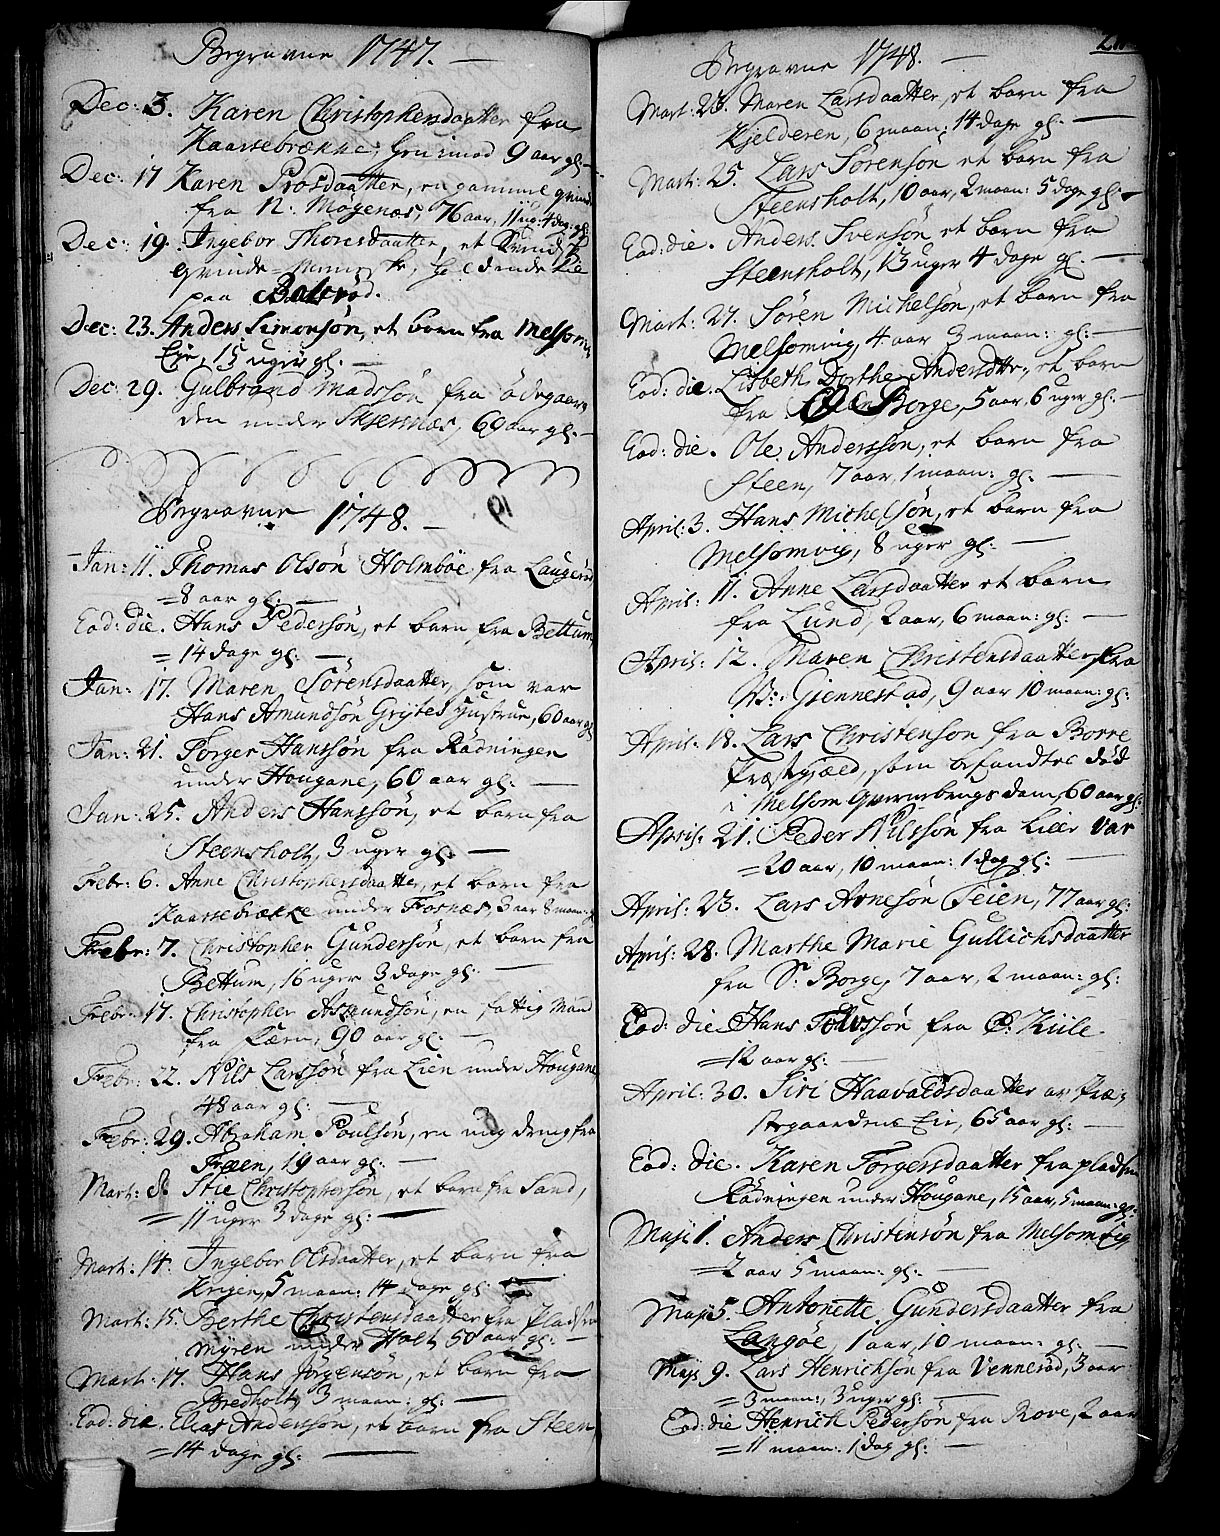 Begravne 1747. —
Dec: 3. Karen Christophersdaatter fra
Kaarsebrække, Grimmod 9 aar gl: —
Dec: 17 Karen Prosdaatter, en gammel qvinde
fra N: Mogenæs, 76 aar, 11 ug: 4 dag: gl:
Dec: 19. Ingebor Thoresdaatter, et
qvinde-menniske, 
paa Bolsrød.
Dec: 23. Anders Simonsøn, et barn fra Melsom
Eie, 15 uger gl. —
Dec: 29. Gulbrand Madssøn fra Ødegaar-
den under Skjernæs, 69 aar gl. —
Begravne 1748. —
Jan: 11. Thomas Olsøn Holmbøe fra Laugerød
= 8 aar gl: —
Eod: die. Hans Pedersøn, et barn fra Bettum,
= 14 dage gl: —
Jan: 17. Maren Sørensdaatter, som var
Hans Amundsøn Grytes Hustrue, 60 aar gl
Jan: 21. Torger Hanssøn fra Rødningen
under Hougane, 60 aar gl: —
Jan: 25. Anders Hanssøn, et barn fra
Steensholt, 3 uger gl: —
Febr: 6. Anne Christophersdaatter, et barn fra
Kaarsebrække under Fosnæs, 3 aar 8 maan: gl
Febr: 7. Christopher Gundersøn, et barn fra
Bettum, 16 uger 3 dage gl: —
Febr: 17. Christopher Asmundsøn, en fattig Mand
fra Kærn, 90 aar gl: —
Febr: 22. Nils Larssøn fra Lien under Hougane
48 aar gl: —
Febr: 29. Abraham Poulsøn, en ung dreng fra
Fræen, 19 aar gl: —
Mart: 8. Stie Christophersøn, et barn fra Sand,
= 11 uger 3 dage gl: —
Mart: 14. Ingebor Olsdaatter, et barn fra
Krigen, 5 maan: 14 dage gl: —
Mart: 15. Berthe Christensdaatter fra Pladsen
Myren under Holt, 50 aar gl: —
Mart: 17. Hans Jørgensøn, et barn fra
Bredholt, 3 maan: gl: —
Eod: die. Elias Andersøn, et barn fra Steen
= 14 dage gl: —
Begravne 1748. —
Mart: 23. Maren Larsdaatter, et barn fra
Kjelderen, 6 maan: 14 dage gl. —
Mart: 25. Lars Sørensøn et barn fra
Steensholt, 10 aar, 2 maan: 5 dage gl: —
Eod: die. Anders Svensøn et barn fra
Steensholt, 13 uger 4 dage gl: —
Mart: 27. Søren Michelsøn, et barn fra
Melsomvig, 4 aar 3 maan: gl: —
Eod: die. Lisbeth Dorthe Andersdtter, et barn
fra Borge, 5 aar, 6 uger gl: —
Eod: die. Ole Anderssøn, et barn fra
Steen, 7 aar, 1 maan: gl: —
April: 3. Hans Michelsøn, et barn fra
Melsomvig, 8 uger gl: —
April: 11. Anne Larsdaatter et barn
fra Lund, 2 aar, 6 maan: gl: —
April: 12. Maren Christensdaatter fra
N: Giennestad, 9 aar 10 maan: gl:
April: 18. Lars Christensøn fra Borre
Præstegjæld, som befandtes død
i Melsom Qværnbrugs dam, 60 aar gl:
April: 21. Peder Nilssøn fra Lille Var
= 20 aar, 10 maan: 1 dag gl: —
April: 23. Lars Arnesøn Feien, 77 aar gl:
April: 28. Marthe Marie Gullichsdaatter
fra S: Borge, 7 aar, 2 maan: gl:
Eod: die Hans Tolvssøn fra Ø. Kiile
= 12 aar gl: —
April: 30. Siri Haavaldsdaatter av Præ-
stegaardens Eie, 65 aar gl: —
Eod: die. Karen Torgersdaatter fra pladsen
Rødningen under Hougane, 15 aar, 5 maan: gl:
Maji 1. Anders Christensøn fra Melsomvig
= 2 aar 5 maan: gl: —
Maji 5. Antonette Gundersdaatter fra
Langøe, 1 aar, 10 maan: gl. —
Maji 9. Lars Henrichsøn fra Vennerød, 3 aar
= 3 maan:, 3 uger gl: —
Eod: die Henrich Pedersøn fra Rove, 2 aar
= 11 maan: 1 dag gl: —